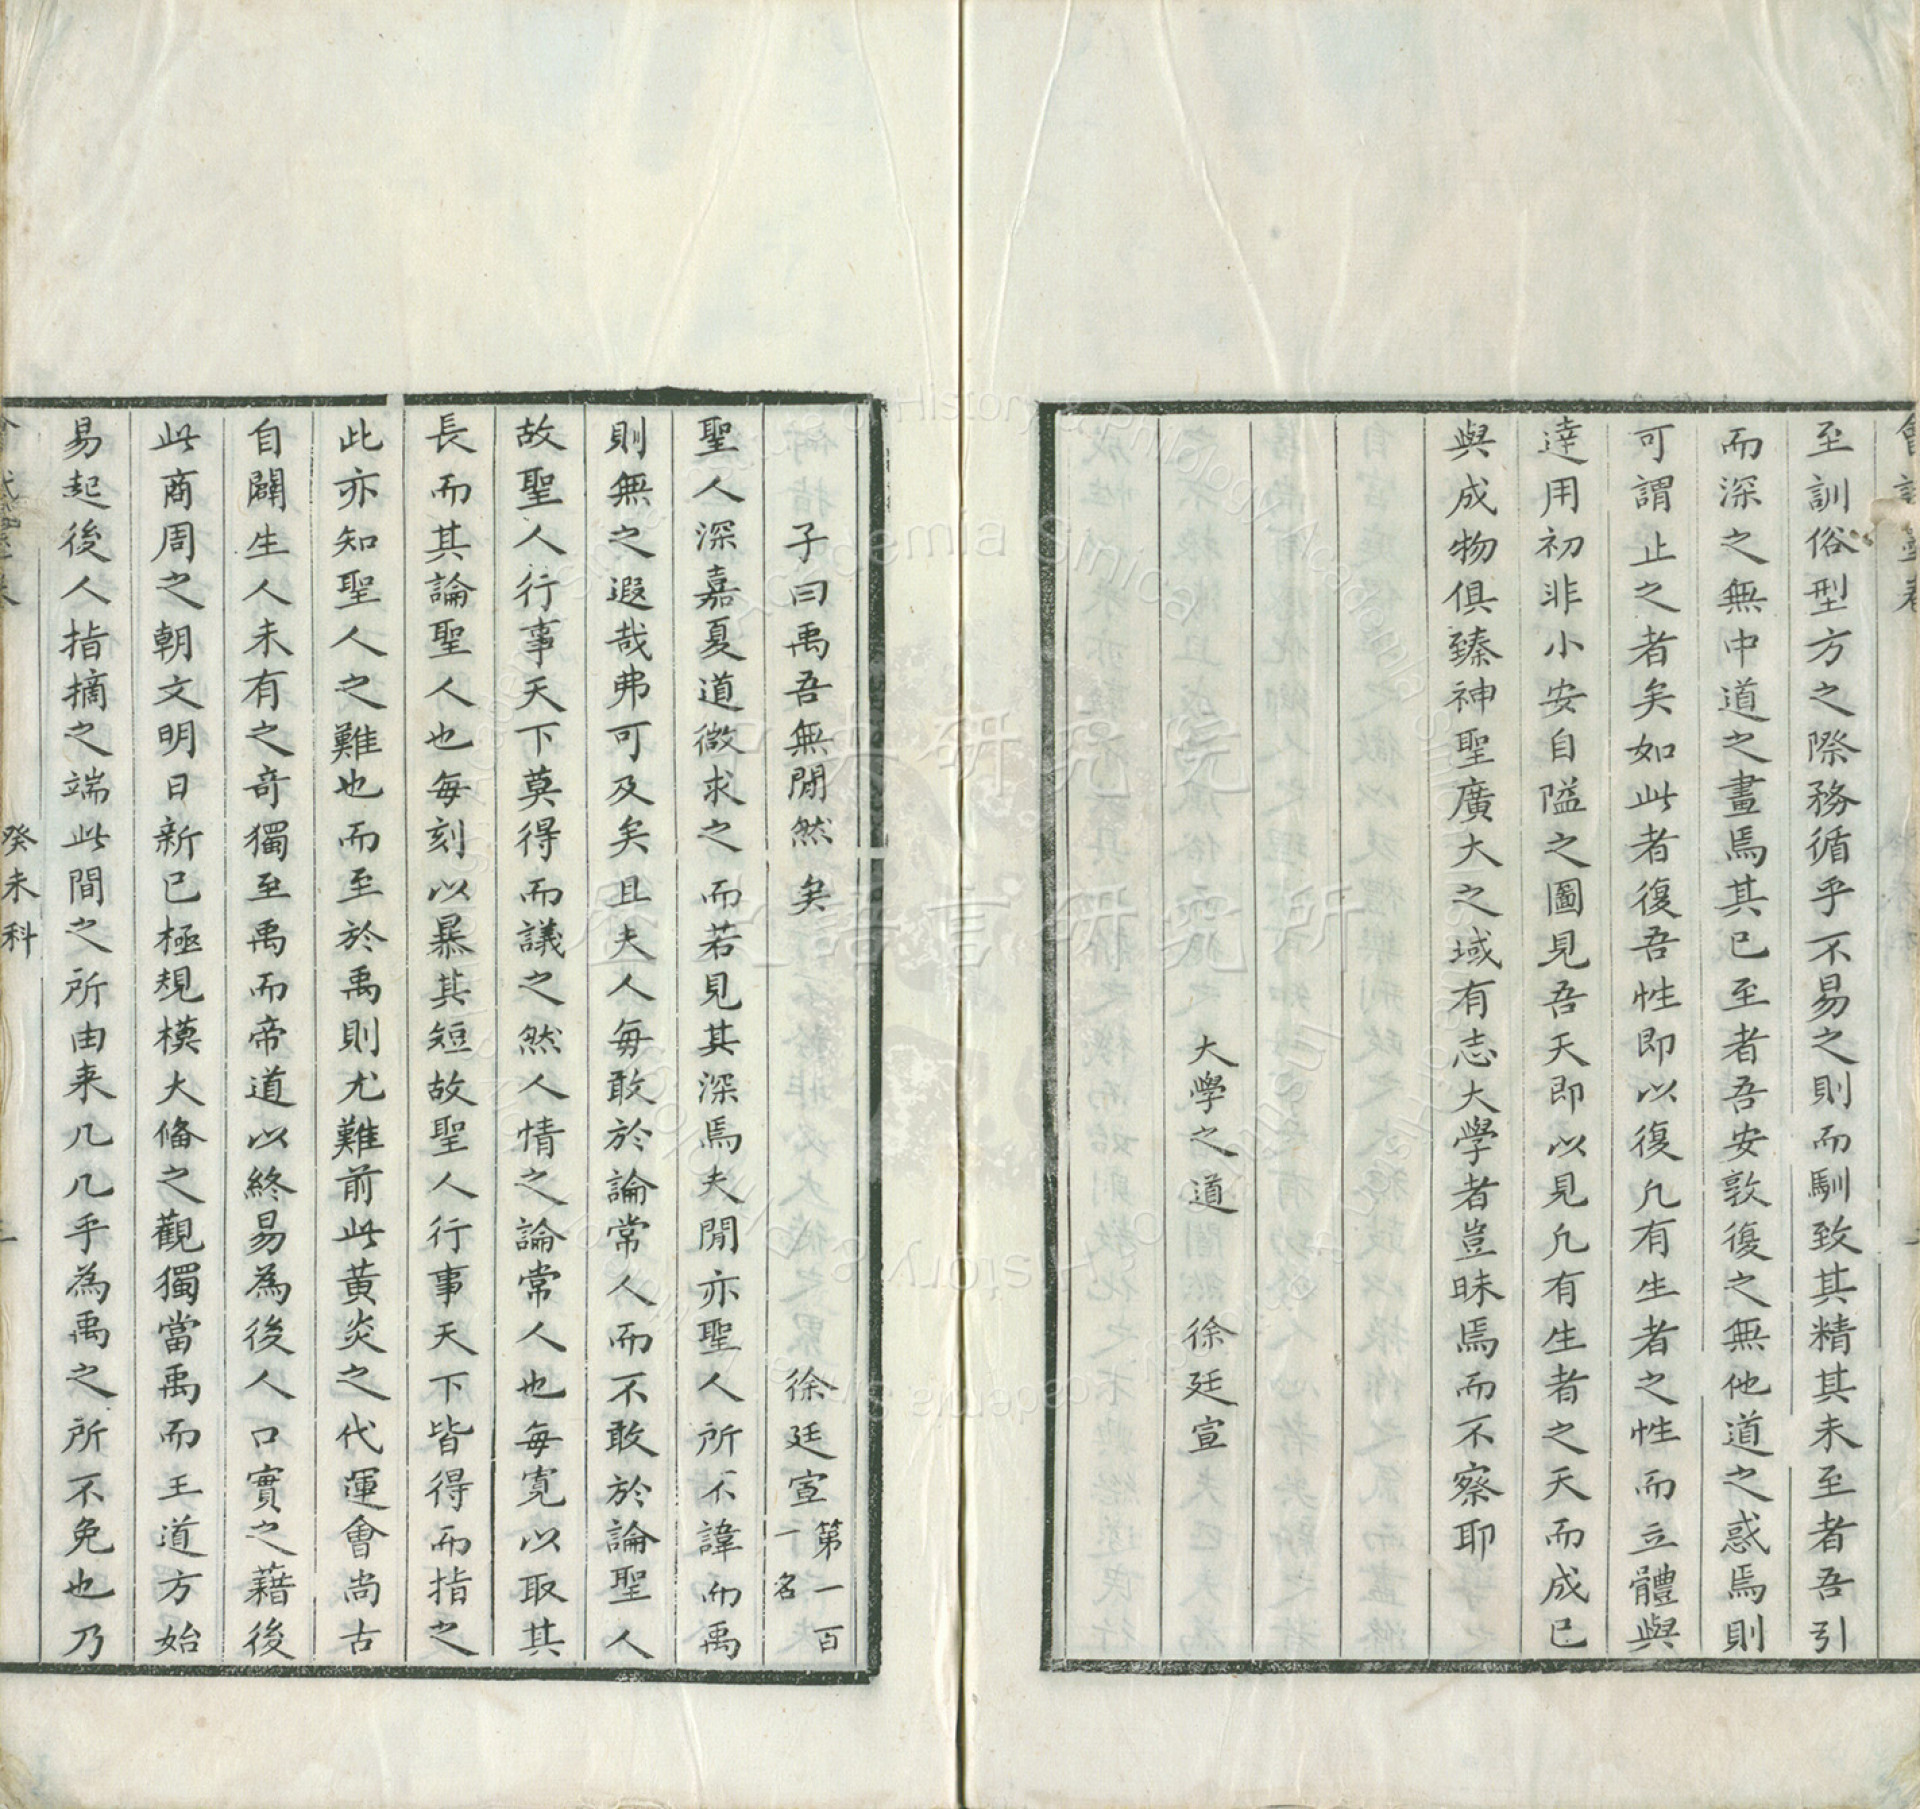 至訓俗型方之際務循乎不易之則而馴致其精其未至者吾引
而深之無中道之畫焉其已至者吾安敦復之無他道之惑焉則
可謂止之者矣如此者復吾性即以復凡有生者之性而立體與
達用初非小安自隘之圖見吾天即以見凡有生者之天而成已
與成物俱臻神聖廣大之域有志大學者豈昧焉而不察耶
大學之道 徐廷宣
子曰禹吾無閒然矣 徐廷宣 第一百一名
聖人深嘉夏道微求之而若見其深焉夫閒亦聖人所不諱而禹
則無之遐哉弗可及矣且夫人每敢於論常人而不敢於論聖人
故聖人行事天下莫得而議之然人情之論常人也每寬以取其
長而其論聖人也每刻以暴其短故聖人行事天下皆得而指之
此亦知聖人之難也而至於禹則尤難前此黃炎之代運會尚古
自闢生人未有之奇獨至禹而帝道以終易為後人口實之藉後
此商周之朝文明日新已極規模大備之觀獨當禹而王道方始
易起後人指摘之端此間之所由来几几乎為禹之所不免也乃
癸未科
中央研究院
歷史語言研究所